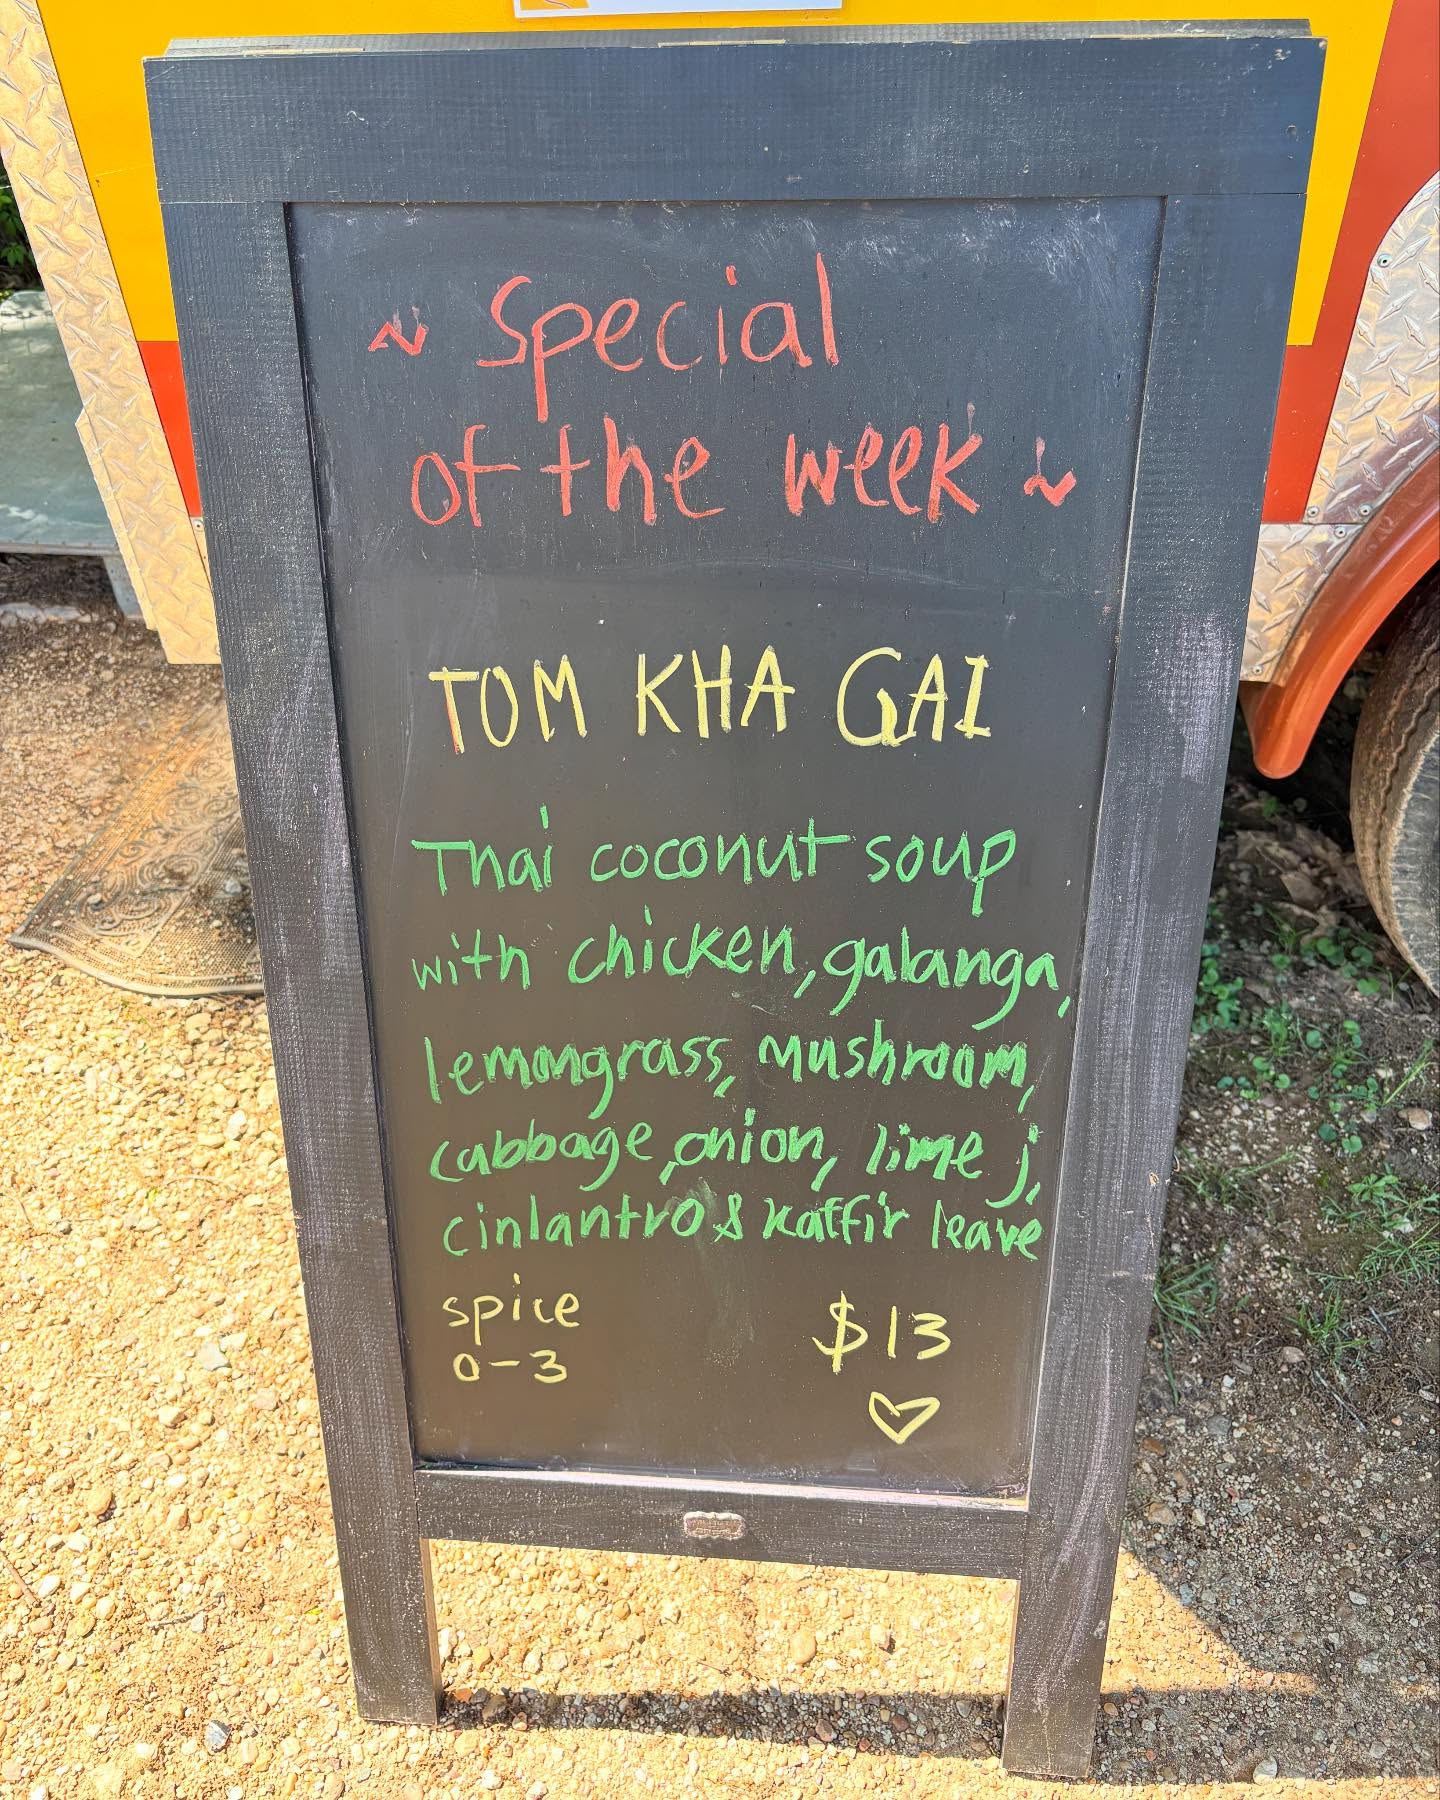 ~ Special
of the week ~
TOM KHA GAI
Thai coconut soup
with chicken, galanga,
lemongrass, mushroom,
cabbage, onion, lime j,
cinlantro & kaffir leave
spice
0-3
$13